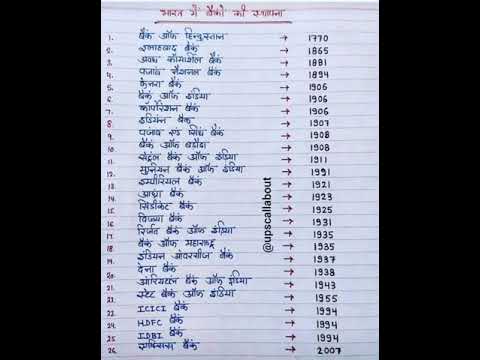 भारत में बैंकों की स्थापना
1. बैंक ऑफ हिन्दुस्तान → 1770
2. इलाहबाद बैंक → 1865
3. अवध कॉमर्शियल बैंक → 1881
4. पंजाब नैशनल बैंक → 1894
5. केनरा बैंक → 1906
6. बैंक ऑफ इंडिया → 1906
7. कॉर्पोरेशन बैंक → 1906
8. इंडियन बैंक → 1907
9. पंजाब एण्ड सिंध बैंक → 1908
10. बैंक ऑफ बड़ौदा → 1908
11. सेंट्रल बैंक ऑफ इंडिया → 1911
12. यूनियन बैंक ऑफ इंडिया → 1991
13. इम्पीरियल बैंक → 1921
14. आन्ध्रा बैंक → 1923
15. सिंडीकेट बैंक → 1925
16. विजया बैंक → 1931
17. रिजर्व बैंक ऑफ इंडिया → 1935
18. बैंक ऑफ महाराष्ट्र → 1935
19. इंडियन ओवरसीज बैंक → 1937
20. देना बैंक → 1938
21. ओरियण्टल बैंक ऑफ इंडिया → 1943
22. स्टेट बैंक ऑफ इंडिया → 1955
23. ICICI बैंक → 1994
24. HDFC बैंक → 1994
25. IDBI बैंक → 1994
26. एक्सिस बैंक → 2007
@upscallabout